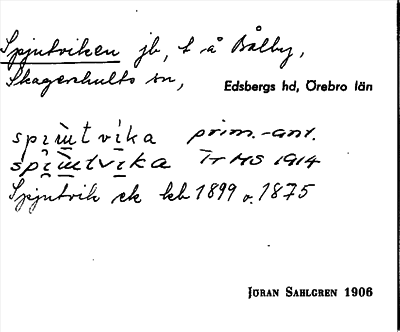 Spjutviken jb, t. å Bålby,
Skagershults sn,
Edsbergs hd, Örebro län
spi̯ùtvìka prim.-ant.
spi̯ùtvìka Tr HS 1914
Spjutvik ek kb 1899 o. 1875
JÖRAN SAHLGREN 1906